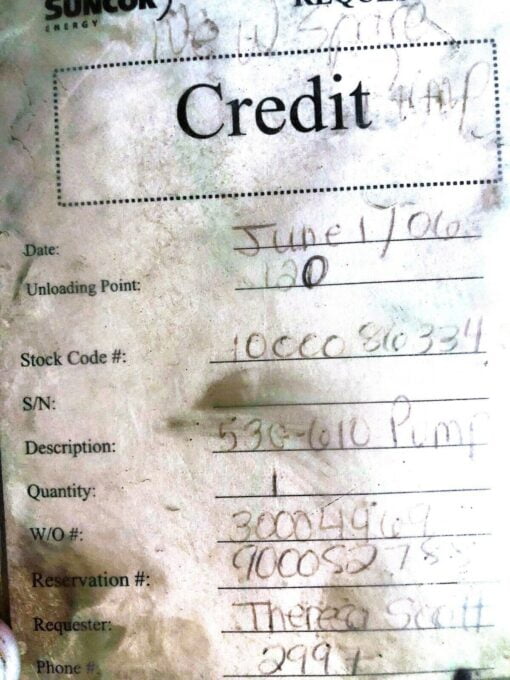 SUNCOR
ENERGY
Credit
Date: June 1/06
Unloading Point: 120
Stock Code #: 1000086334
S/N:
Description: 530-610 Pump
Quantity: 1
W/O #: 30004969
Reservation #:
Requester: Theresa Scott
Phone #